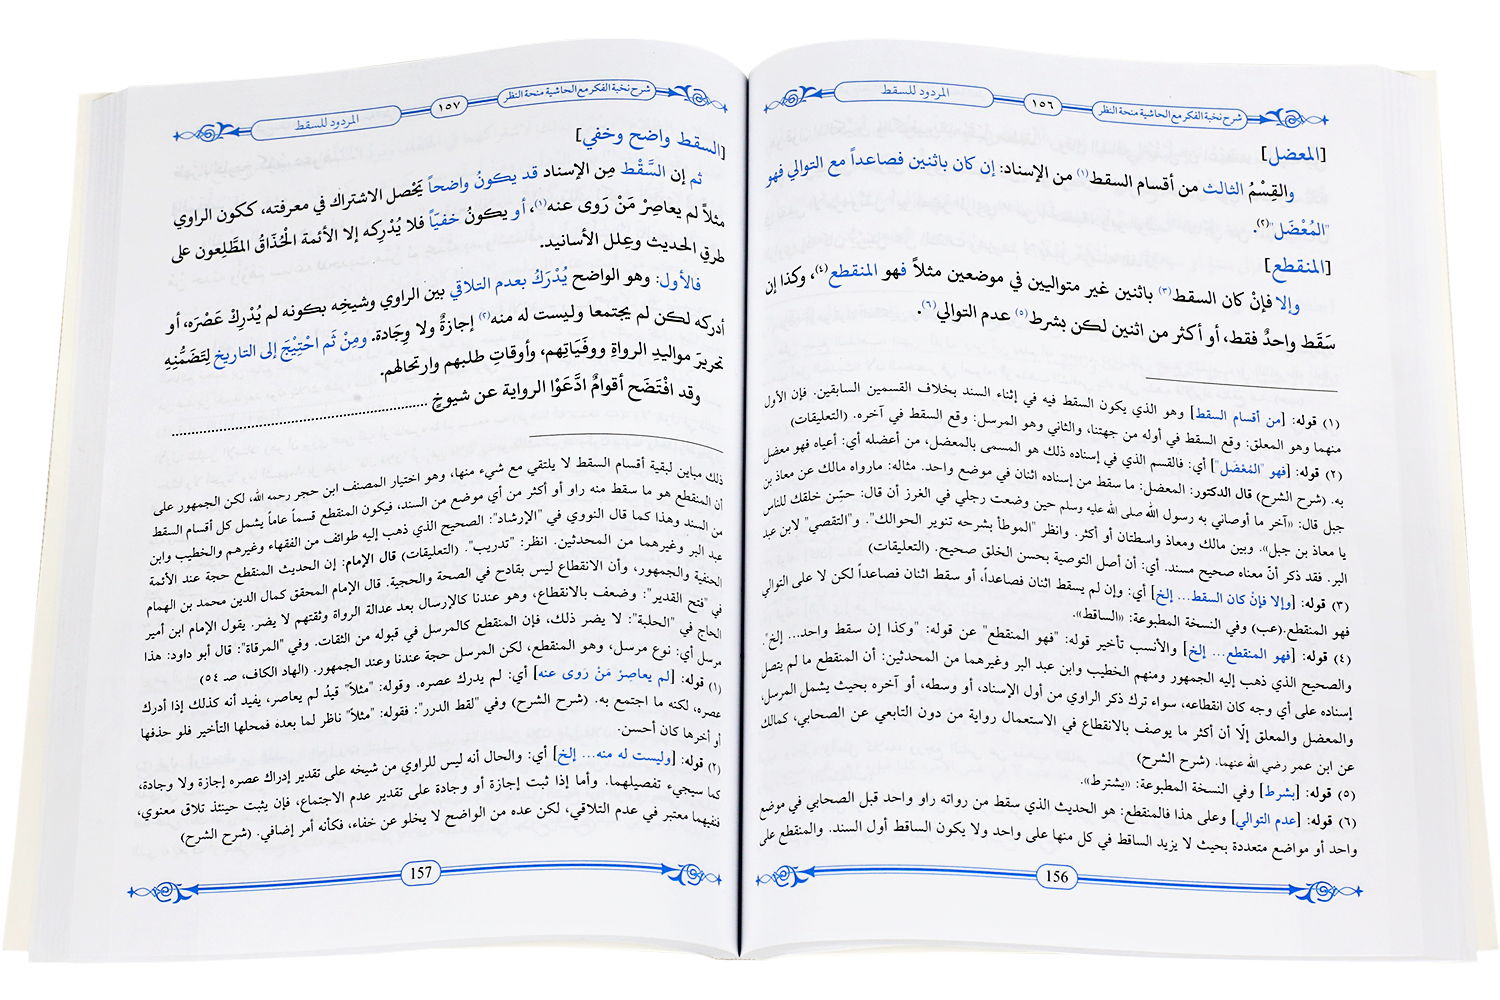 شرح نخبة الفكر مع الحاشية منحة النظر
١٥٦
المردود للسقط
[المعضل]
والقِسْمُ الثالث من أقسام السقط(١) من الإسناد: إن كان باثنين فصاعداً مع التوالي فهو
"المُعْضَل"(٢).
[المنقطع]
وإلا فإنْ كان السقط(٣) باثنين غير متواليين في موضعين مثلاً فهو المنقطع(٤)، وكذا إن
سَقَط واحدٌ فقط، أو أكثر من اثنين لكن بشرط(٥) عدم التوالي(٦).
(١) قوله: [من أقسام السقط] وهو الذي يكون السقط فيه في إثناء السند بخلاف القسمين السابقين. فإن الأول
منهما وهو المعلق: وقع السقط في أوله من جهتنا، والثاني وهو المرسل: وقع السقط في آخره. (التعليقات)
(٢) قوله: [فهو "المُعْضَل"] أي: فالقسم الذي في إسناده ذلك هو المسمى بالمعضل، من أعضله أي: أعياه فهو معضل
به. (شرح الشرح) قال الدكتور: المعضل: ما سقط من إسناده اثنان في موضع واحد. مثاله: مارواه مالك عن معاذ بن
جبل قال: «آخر ما أوصاني به رسول الله صلى الله عليه وسلم حين وضعت رجلي في الغرز أن قال: حسّن خلقك للناس
يا معاذ بن جبل». وبين مالك ومعاذ واسطتان أو أكثر. وانظر "الموطأ بشرحه تنوير الحوالك". و"التقصي" لابن عبد
البر. فقد ذكر أنّ معناه صحيح مسند. أي: أن أصل التوصية بحسن الخلق صحيح. (التعليقات)
(٣) قوله: [وإلا فإنْ كان السقط... إلخ] أي: وإن لم يسقط اثنان فصاعداً، أو سقط اثنان فصاعداً لكن لا على التوالي
فهو المنقطع.(عب) وفي النسخة المطبوعة: «الساقط».
(٤) قوله: [فهو المنقطع... إلخ] والأنسب تأخير قوله: "فهو المنقطع" عن قوله: "وكذا إن سقط واحد... إلخ".
والصحيح الذي ذهب إليه الجمهور ومنهم الخطيب وابن عبد البر وغيرهما من المحدثين: أن المنقطع ما لم يتصل
إسناده على أي وجه كان انقطاعه، سواء ترك ذكر الراوي من أول الإسناد، أو وسطه، أو آخره بحيث يشمل المرسل،
والمعضل والمعلق إلّا أن أكثر ما يوصف بالانقطاع في الاستعمال رواية من دون التابعي عن الصحابي، كمالك
عن ابن عمر رضي الله عنهما. (شرح الشرح)
(٥) قوله: [بشرط] وفي النسخة المطبوعة: «يشترط».
(٦) قوله: [عدم التوالي] وعلى هذا فالمنقطع: هو الحديث الذي سقط من رواته راو واحد قبل الصحابي في موضع
واحد أو مواضع متعددة بحيث لا يزيد الساقط في كل منها على واحد ولا يكون الساقط أول السند. والمنقطع على
156
شرح نخبة الفكر مع الحاشية منحة النظر
١٥٧
المردود للسقط
[السقط واضح وخفي]
ثم إن السَّقْط مِن الإسناد قد يكونُ واضحاً يَحْصل الاشتراك في معرفته، ككون الراوي
مثلاً لم يعاصِرْ مَنْ رَوى عنه(١)، أو يكونُ خفيّاً فلا يُدْرِكه إلا الأئمة الْحُذَاقُ المطَّلِعون على
طرقِ الحديث وعِلل الأسانيد.
فالأول: وهو الواضح يُدْرَكُ بعدم التلاقي بين الراوي وشيخِه بكونه لم يُدْرِكْ عَصْرَه، أو
أدركه لكن لم يجتمعا وليست له منه(٢) إجازةٌ ولا وِجَادة. ومِنْ ثَم احْتِيْجَ إلى التاريخ لِتَضَمُّنِهِ
تحريرَ مواليدِ الرواةِ ووفَيَاتِهم، وأوقاتِ طلبهم وارتحالهم.
وقد افْتَضَح أقوامٌ ادَّعَوْا الرواية عن شيوخٍ ........................................
ذلك مباين لبقية أقسام السقط لا يلتقي مع شيء منها، وهو اختيار المصنف ابن حجر رحمه الله، لكن الجمهور على
أن المنقطع هو ما سقط منه راو أو أكثر من أي موضع من السند، فيكون المنقطع قسماً عاماً يشمل كل أقسام السقط
من السند وهذا كما قال النووي في "الإرشاد": الصحيح الذي ذهب إليه طوائف من الفقهاء وغيرهم والخطيب وابن
عبد البر وغيرهما من المحدثين. انظر: "تدريب". (التعليقات) قال الإمام: إن الحديث المنقطع حجة عند الأئمة
الحنفية والجمهور، وأن الانقطاع ليس بقادح في الصحة والحجية. قال الإمام المحقق كمال الدين محمد بن الهمام
في "فتح القدير": وضعف بالانقطاع، وهو عندنا كالإرسال بعد عدالة الرواة وثقتهم لا يضر. يقول الإمام ابن أمير
الحاج في "الحلبة": لا يضر ذلك، فإن المنقطع كالمرسل في قبوله من الثقات. وفي "المرقاة": قال أبو داود: هذا
مرسل أي: نوع مرسل، وهو المنقطع، لكن المرسل حجة عندنا وعند الجمهور. (الهاد الكاف، صـ ٥٤)
(١) قوله: [لم يعاصِرْ مَنْ رَوى عنه] أي: لم يدرك عصره. وقوله: "مثلاً" قيدٌ لم يعاصر، يفيد أنه كذلك إذا أدرك
عصره، لكنه ما اجتمع به. (شرح الشرح) وفي "لقط الدرر": فقوله: "مثلاً" ناظر لما بعده فمحلها التأخير فلو حذفها
أو أخرها كان أحسن.
(٢) قوله: [وليست له منه... إلخ] أي: والحال أنه ليس للراوي من شيخه على تقدير إدراك عصره إجازة ولا وجادة،
كما سيجيء تفصيلهما. وأما إذا ثبت إجازة أو وجادة على تقدير عدم الاجتماع، فإن يثبت حينئذ تلاق معنوي،
فنفيهما معتبر في عدم التلاقي، لكن عده من الواضح لا يخلو عن خفاء، فكأنه أمر إضافي. (شرح الشرح)
157